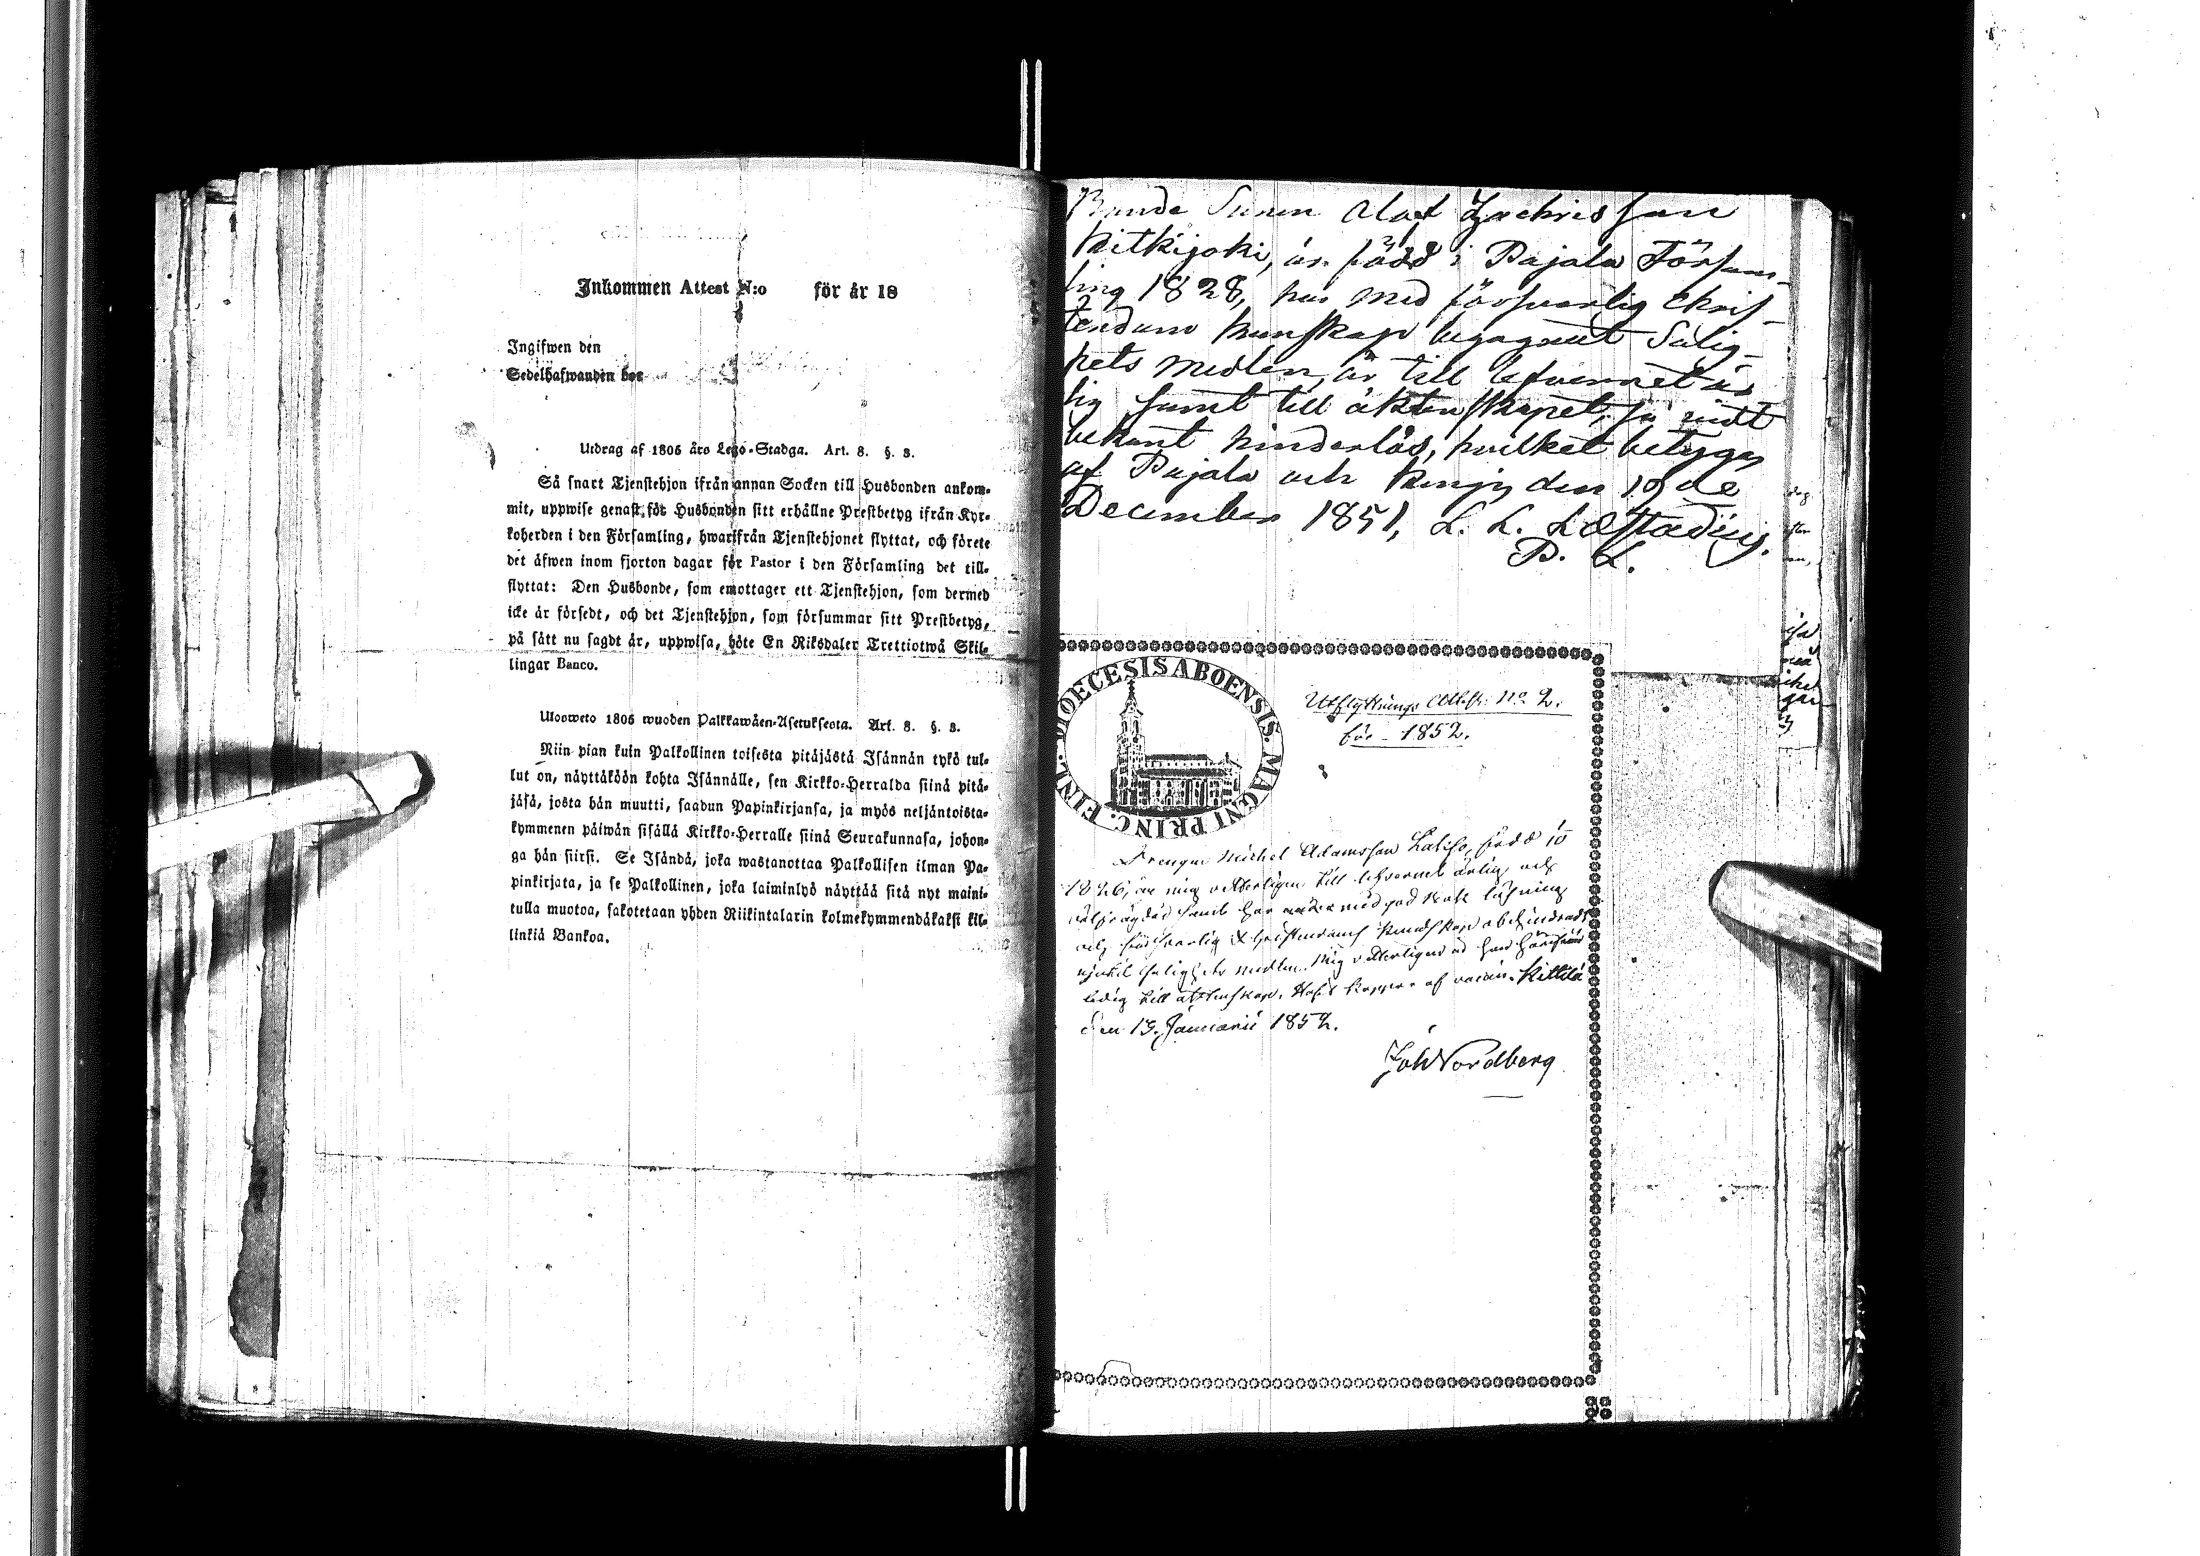 Inkommen Attest N:o för år 18
Ingifwen den
Sedelhafwanden bor
Utdrag af 1805 års Lego-Stadga. Art. 8. §. 3.
Så snart Tjenstehjon ifrån annan Socken till Husbonden ankom-
mit, uppwise genast för Husbonden sitt erhållne Prestbetyg ifrån Kyr-
koherden i den Församling, hwarifrån Tjenstehjonet flyttat, och förete
det äfwen inom fjorton dagar för Pastor i den Församling det till-
flyttat: Den Husbonde, som emottager ett Tjenstehjon, som dermed
icke är försedt, och det Tjenstehjon, som försummar sitt Prestbetyg,
på sätt nu sagdt är, uppwisa, böte En Riksdaler Trettiotwå Skil-
lingar Banco.
Ulosweto 1805 wuoden Palkkawäen-Asetuksesta. Art. 8. §. 3.
Niin pian kuin Palkollinen toisesta pitäjästä Isännän tykö tul-
lut on, näyttäköön kohta Isännälle, sen Kirkko-Herralda siinä pitä-
jäsä, josta hän muutti, saadun Papinkirjansa, ja myös neljäntoista-
kymmenen päiwän sisällä Kirkko-Herralle siinä Seurakunnasa, johon-
ga hän siirsi. Se Isändä, joka wastanottaa Palkollisen ilman Pa-
pinkirjata, ja se Palkollinen, joka laiminlyö näyttää sitä nyt maini-
tulla muotoa, sakotetaan yhden Riikintalarin kolmekymmendäkaksi kil-
linkiä Bankoa.
Bonde Sonen Olof Zachrisson
Kitkijoki, är född i Pajala Försam-
ling 1828, har med försvarlig chris-
tendoms kunskap begagnat Salig-
hets medlen, är till lefvernet är
lig samt till äktenskapet, så vidt
bekant hinderlös, hvilket betygas
af Pajala och Kengis den 19de
December 1851, L. L. Læstadius.
P. L.
FINL. DIOECESIS ABOENSIS. MAGNI PRINC.
Utflyttnings Att. No 2.
för 1852.
Drengen Michel Adamsson född
1826, är mig vetterligen till lefvernet ärlig och
samt har med god läsning
och försvarlig Christendoms kundskap
salighets medlen. Mig vetterligen är han
ledig till äktenskap. Kittilä
den 13. Januarii 1852.
Joh Nordberg